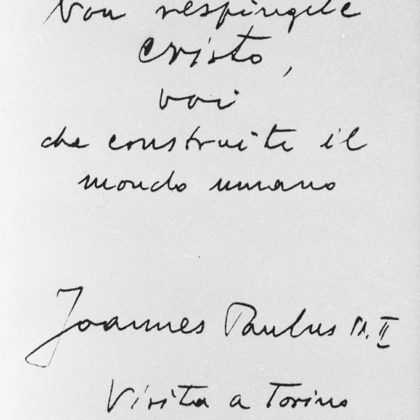 Non respingete
Cristo,
voi
che construite il
mondo umano
Joannes Paulus pp. II
Visita a Torino